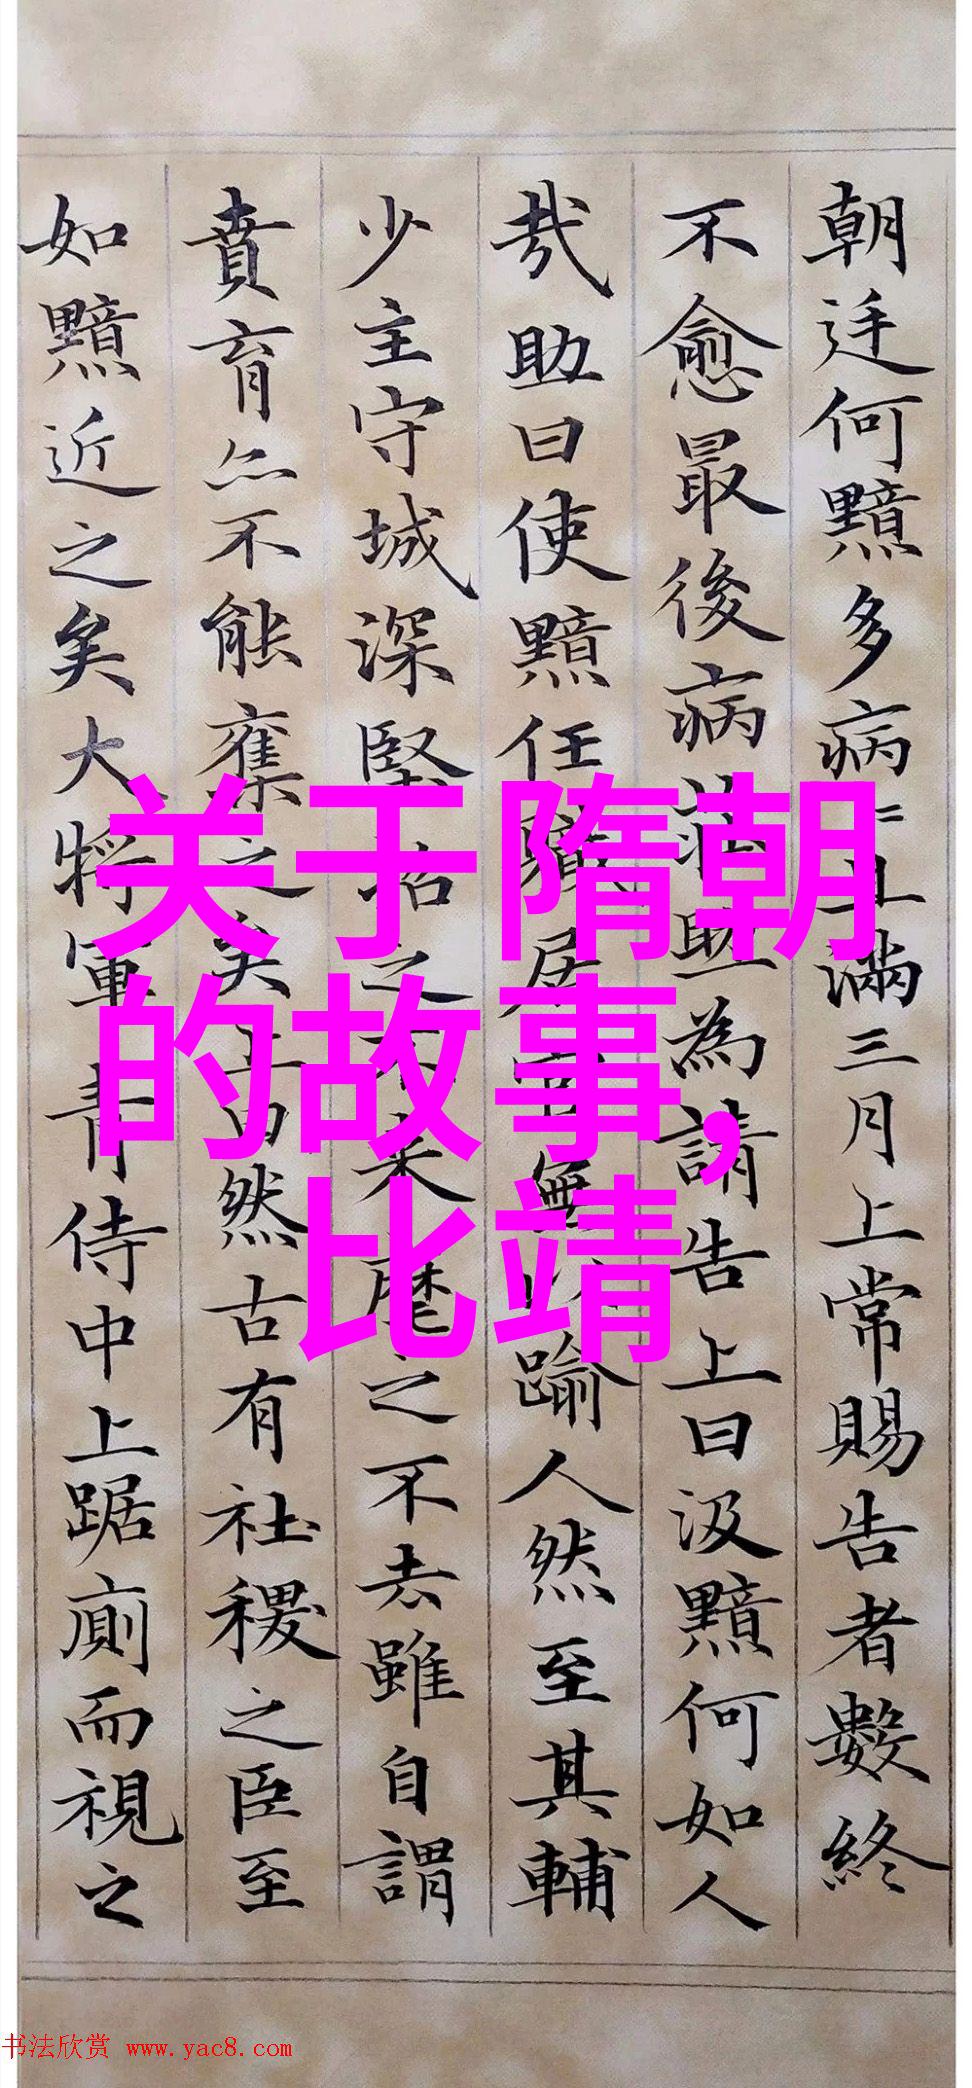 朝廷何黯多病病且滿三月上常賜告者數終
不愈最後病莊助為請告上曰汲黯何如人
哉助曰使黯任職居官無以踰人然至其輔
少主守城深堅招之不來麾之不去雖自謂
賁育亦不能奪之矣上曰然古有社稷之臣至
如黯近之矣大將軍青侍中上踞廁而視之
关于隋朝
的故事，
比靖
书法欣赏 www.yac8.com